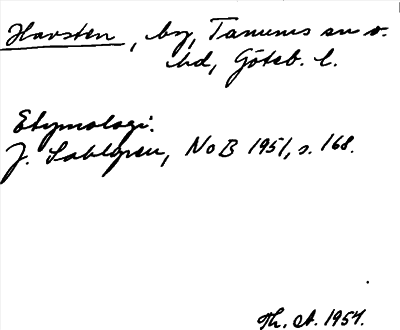 Havsten, by, Tanums sn o.
hd, Göteb. l.
Etymologi:
J. Sahlgren, NoB 1951, s. 168.
Th. A. 1957.